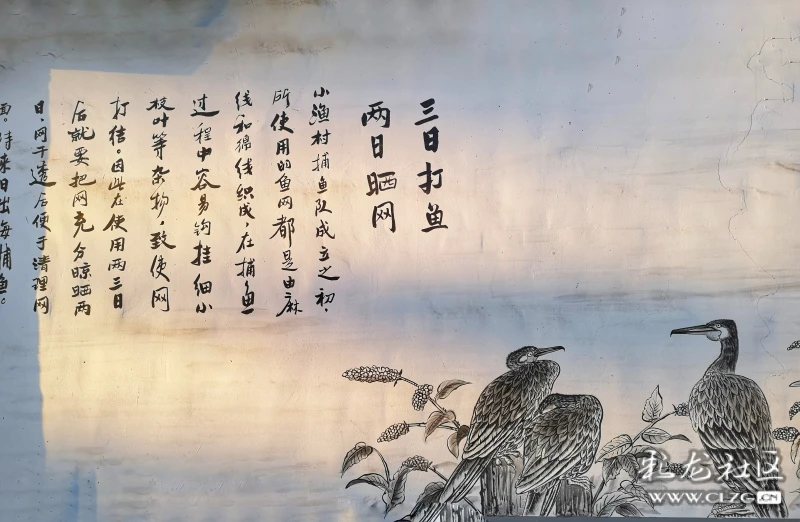 三日打鱼
两日晒网
小渔村捕鱼队成立之初，
所使用的鱼网都是由麻
线和猽线织成，在捕鱼
过程中容易钩挂细小
枝叶等杂物，致使网
打结。因此在使用两三日
后就要把网充分晾晒两
日，网干透后便于清理网
面。待来日出海捕鱼。
麻龙社区
WWW.CLZG.CN